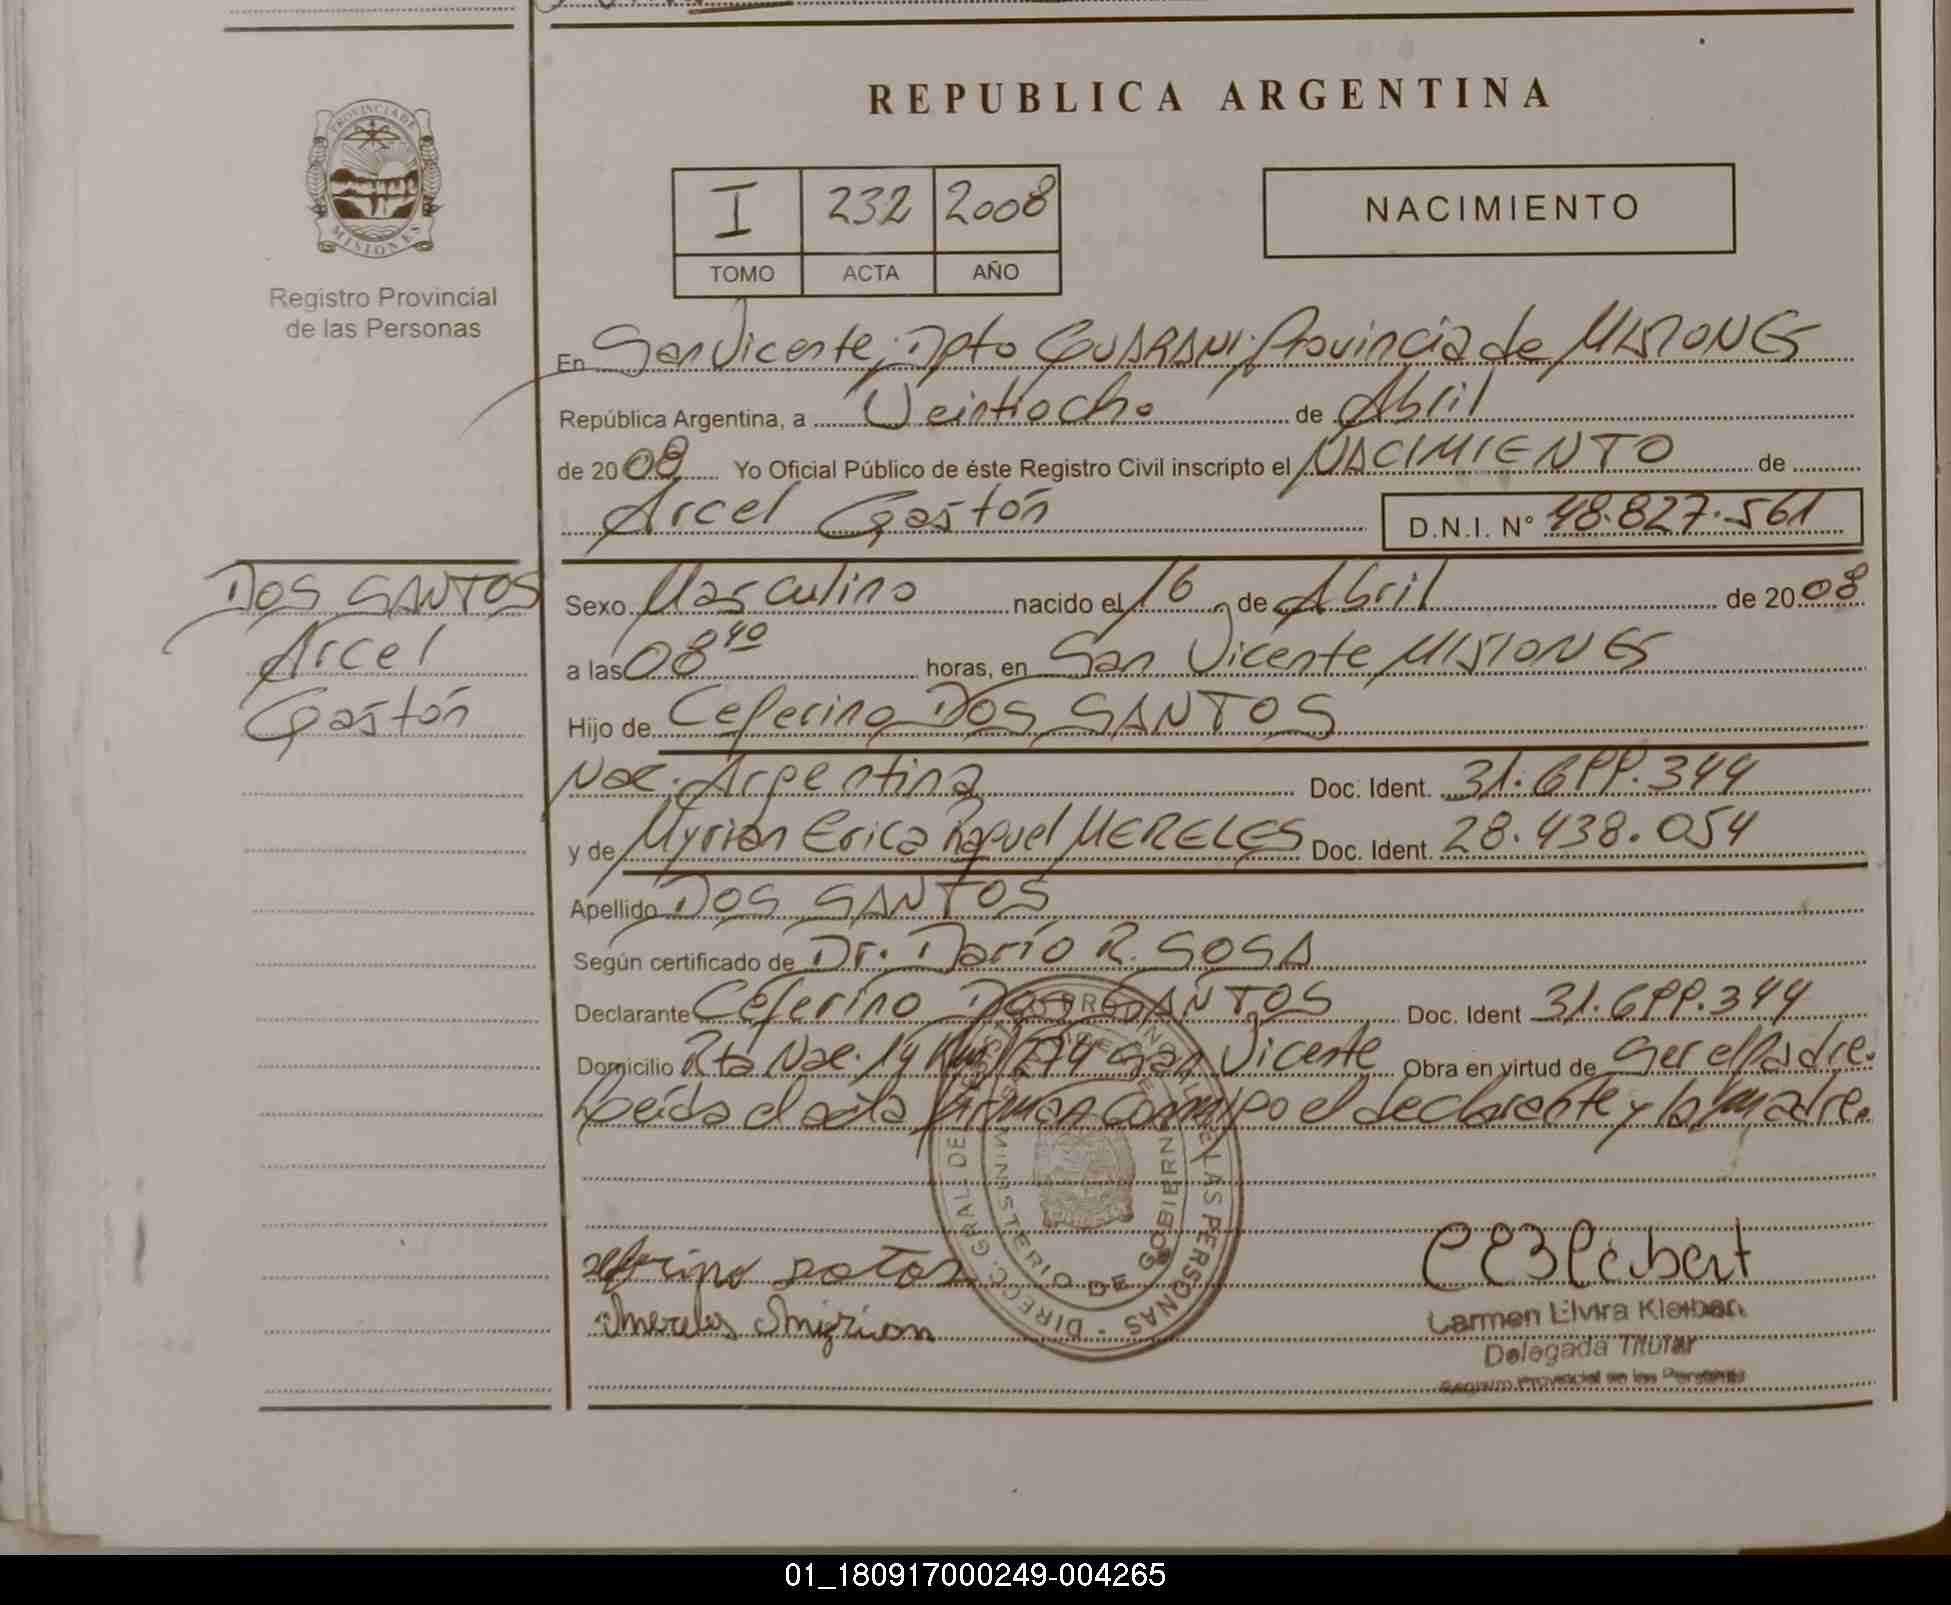 REPUBLICA ARGENTINA
PROVINCIA DE MISIONES
Registro Provincial
de las Personas
I 232 2008
TOMO ACTA AÑO
NACIMIENTO
En San Vicente, Dpto GUARANI. Provincia de MISIONES
República Argentina, a Veintiocho de Abril
de 2008 Yo Oficial Público de éste Registro Civil inscripto el NACIMIENTO de
Arcel Gastón D.N.I. N° 48.827.561
DOS SANTOS
Arcel
Gastón
Sexo Masculino nacido el 16 de Abril de 2008
a las 08 40 horas, en San Vicente MISIONES
Hijo de Ceferino DOS SANTOS
Nac. Argentina Doc. Ident. 31.699.344
y de Myrian Erica Raquel MERELES Doc. Ident. 28.438.054
Apellido DOS SANTOS
Según certificado de Dr. Darío R. SOSA
Declarante Ceferino DOS SANTOS Doc. Ident 31.699.344
Domicilio Rta Nac. 14 Km 1274 San Vicente Obra en virtud de ser el Padre.
Leída el acta firman conmigo el declarante y la madre.
DIRECC. GRAL. DE LAS PERSONAS
MINISTERIO DE GOBIERNO
seferino sotos
Mereles Mirian
Carmen Elvira Kleibert
Delegada Titular
Registro Provincial de las Personas
01_180917000249-004265